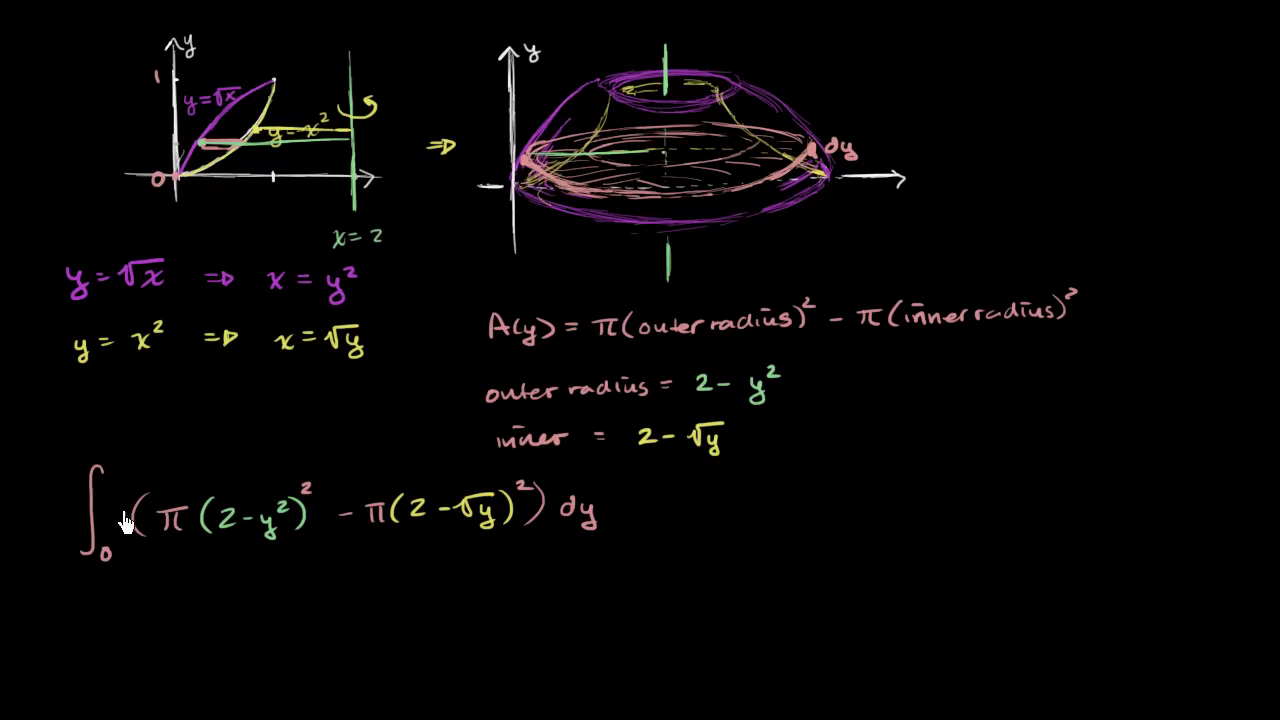 y
1
y=√x
y=x²
0
x=2
⇒
y
dy
y=√x ⇒ x=y²
y = x² ⇒ x=√y
A(y) = π(outer radius)² - π(inner radius)²
outer radius = 2 - y²
inner = 2 - √y
∫₀ (π(2-y²)² - π(2-√y)²) dy